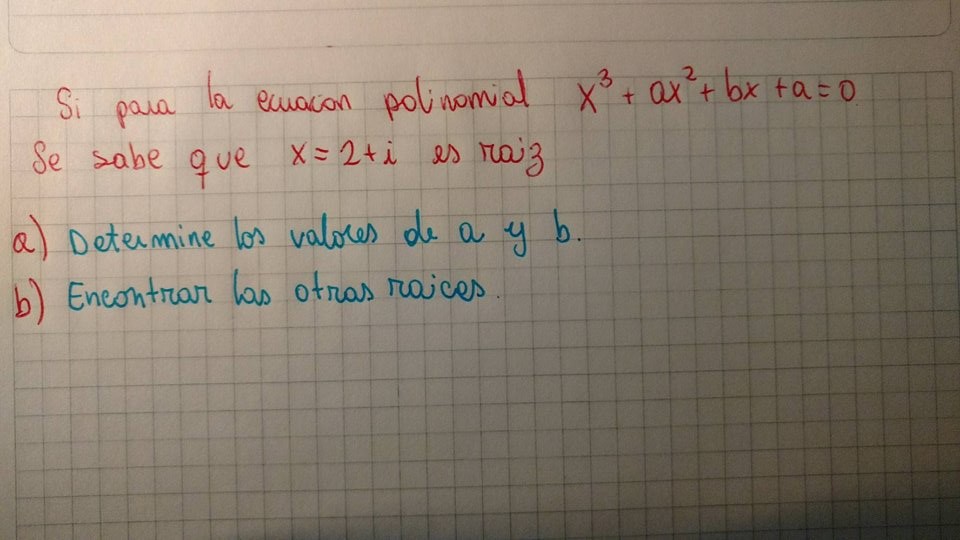 Si para la ecuacion polinomial x³ + ax² + bx + a = 0
Se sabe que x = 2 + i es raiz
a) Determine los valores de a y b.
b) Encontrar las otras raices.